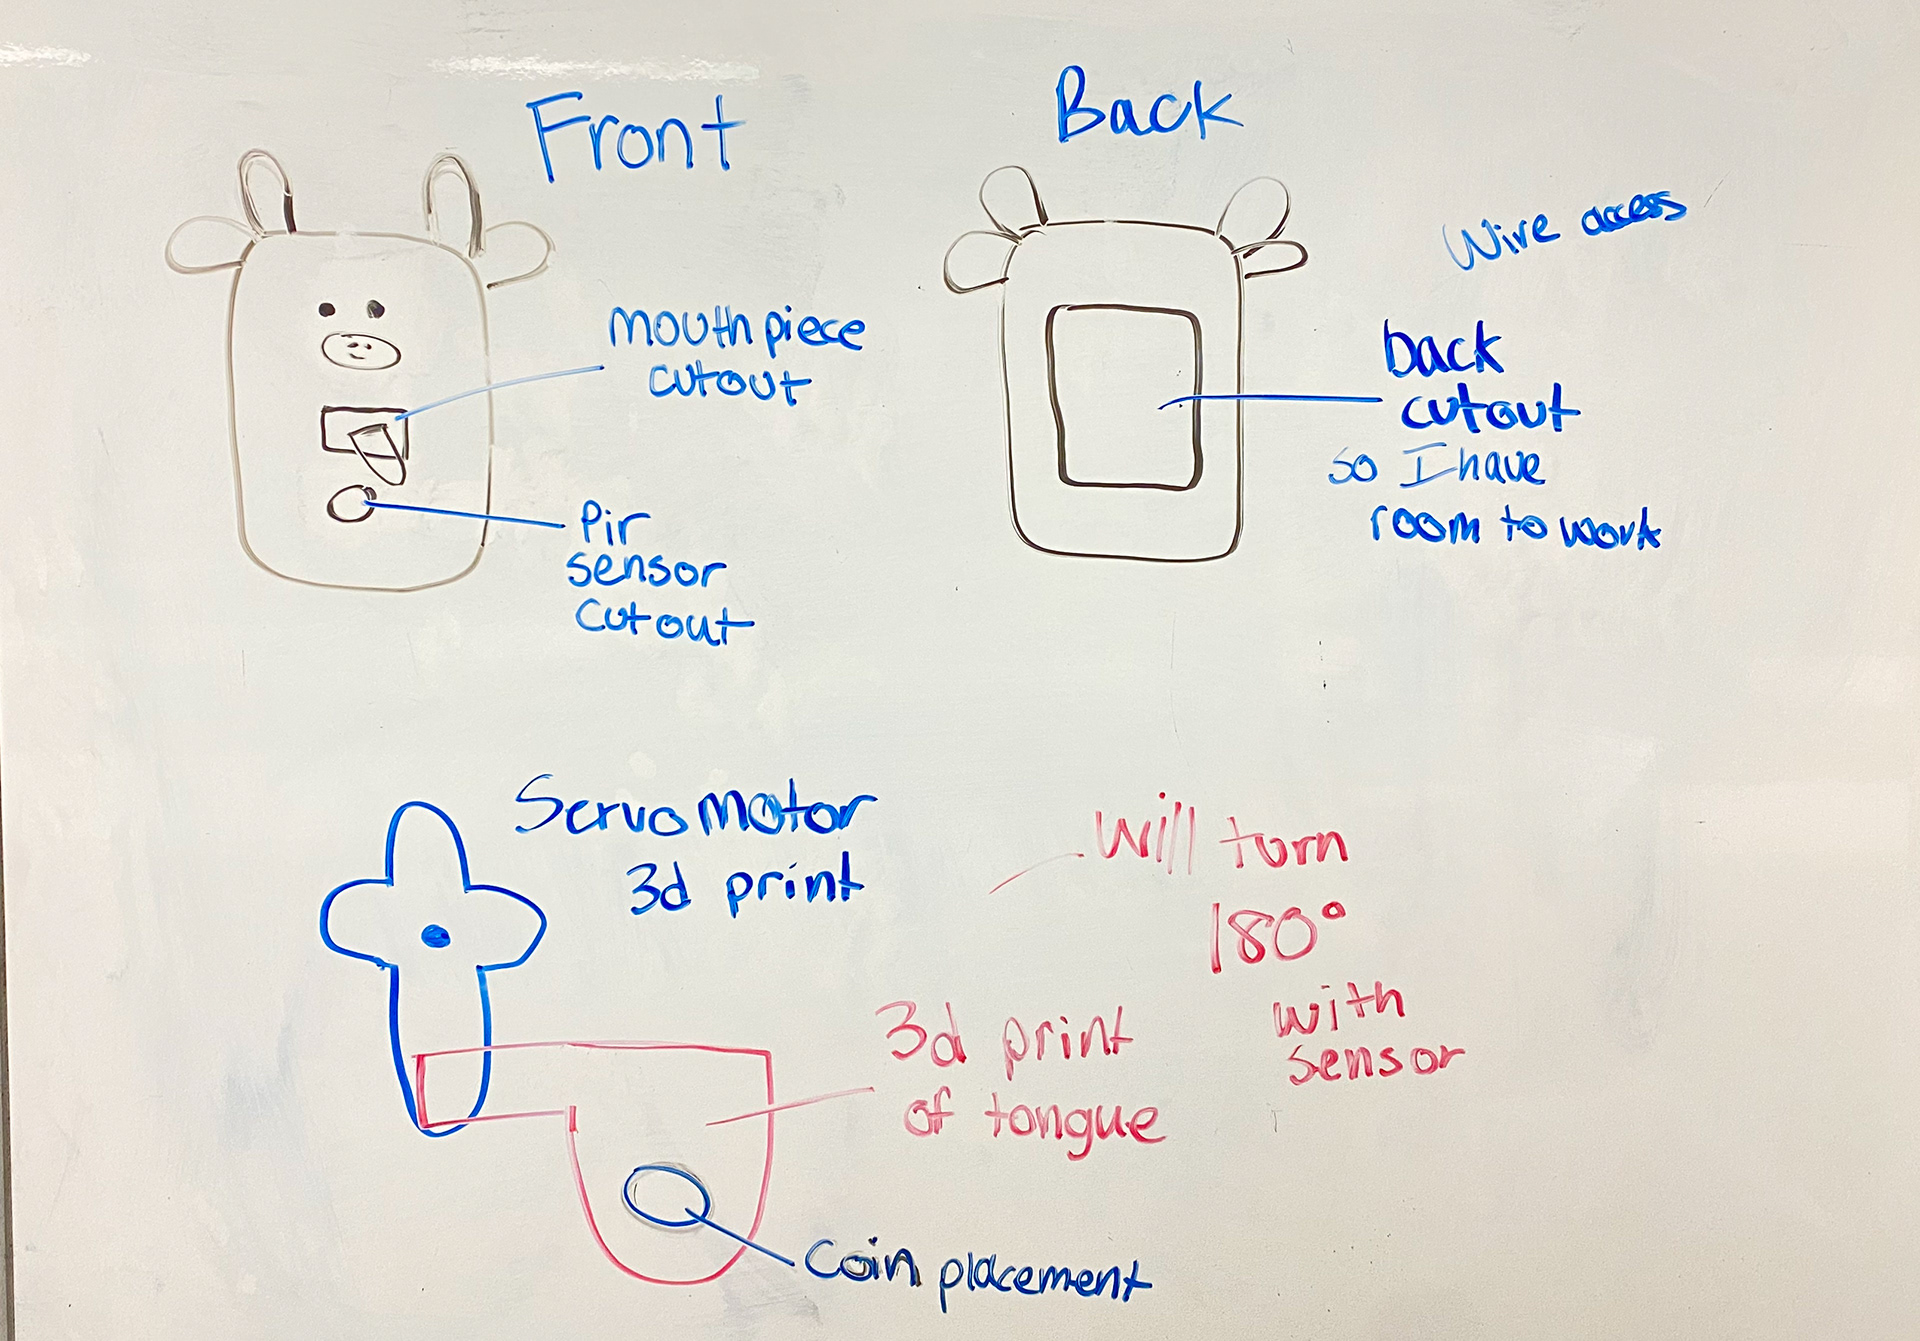 Front
Back
Wire access
mouthpiece
cutout
back
cutout
so I have
room to work
Pir
sensor
cutout
Servo motor
3d print
Will turn
180°
with
sensor
3d print
of tongue
Coin placement